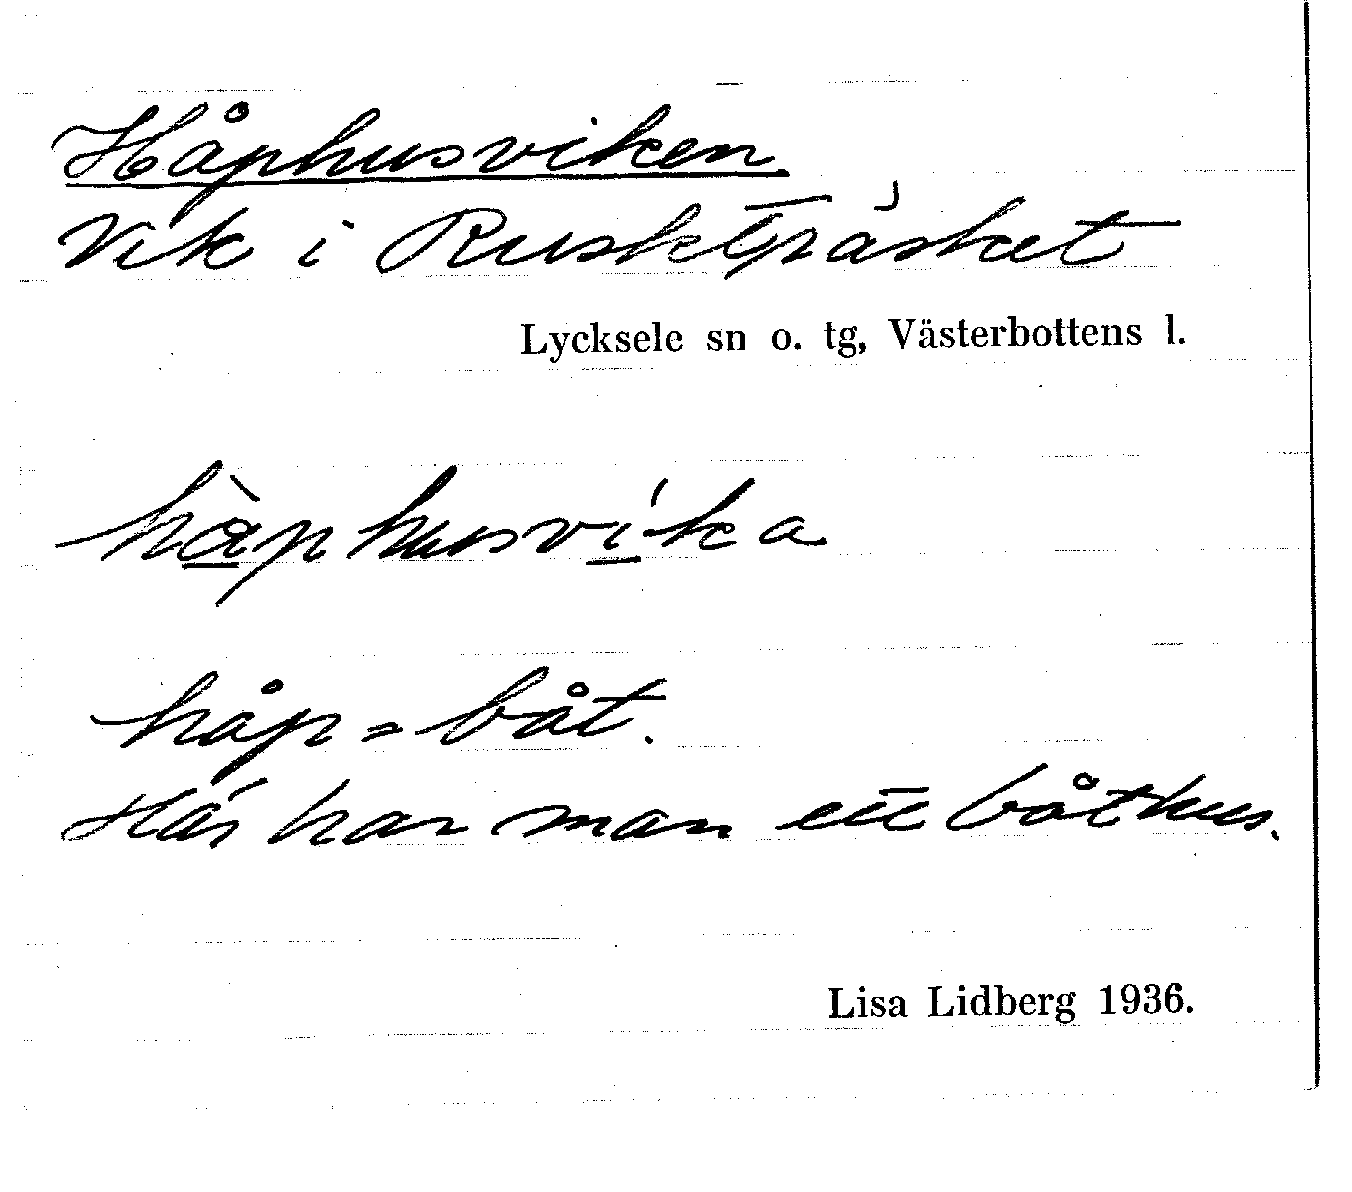 Håphusviken
Vik i Ruskträsket
Lycksele sn o. tg, Västerbottens l.
hàphusvíka
håp = båt.
Här har man ett båthus.
Lisa Lidberg 1936.